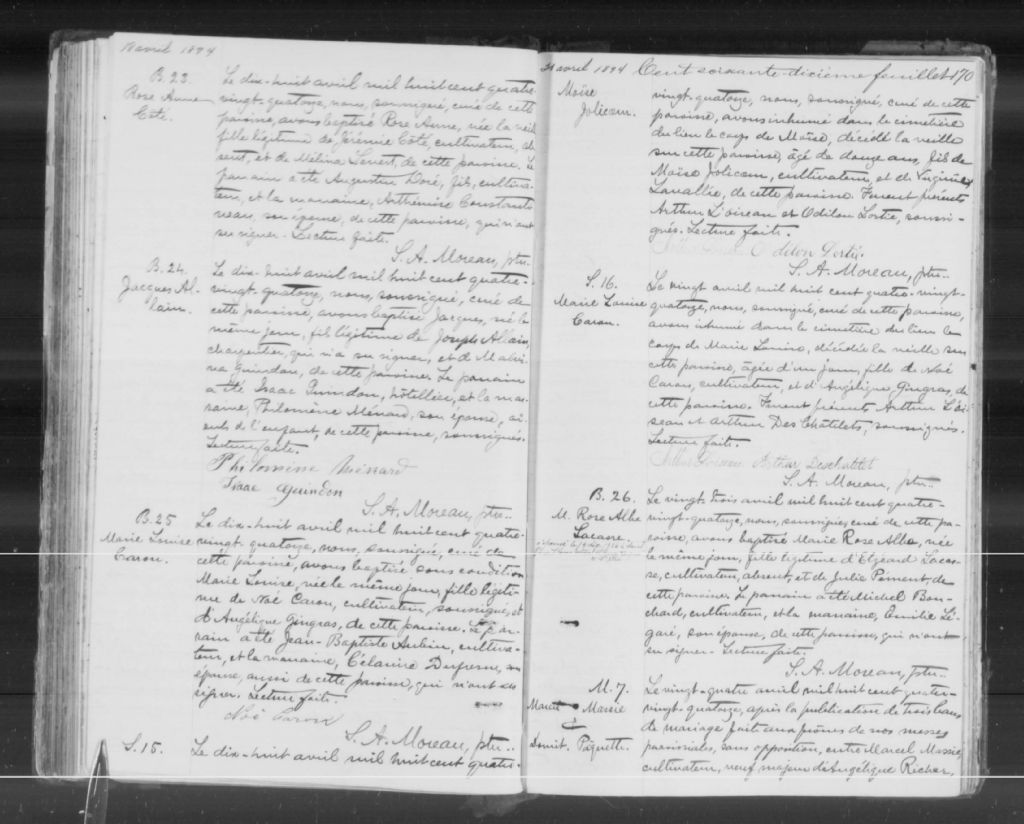 18 avril 1894
B. 23.
Rose Anne
Coté.
Le dix-huit avril mil huit cent quatre-
vingt-quatorze, nous, soussigné, curé de cette
paroisse, avons baptisé Rose Anne, née la veille
fille légitime de Jérémie Coté, cultivateur, ab-
sent, et de Mélina Senert, de cette paroisse. Le
parrain a été Augustin Doré, fils, cultiva-
teur, et la marraine, Arthémise Constanti-
neau, son épouse, de cette paroisse, qui n'ont
su signer. Lecture faite.
S. A. Moreau, ptre..
B. 24.
Jacques Al-
lain.
Le dix-huit avril mil huit cent quatre-
vingt-quatorze, nous, soussigné, curé de
cette paroisse, avons baptisé Jacques, né le
même jour, fils légitime de Joseph Allain,
charpentier, qui n'a su signer, et de Malvi-
na Guindon, de cette paroisse. Le parrain
a été Isaac Guindon, hôtellier, et la mar-
raine, Philomène Ménard, son épouse, aï-
euls de l'enfant, de cette paroisse, soussignés.
Lecture faite.
Philomène Ménard
Isaac Guindon
S. A. Moreau, ptre..
B. 25
Marie Louise
Caron.
Le dix-huit avril mil huit cent quatre-
vingt-quatorze, nous, soussigné, curé de
cette paroisse, avons baptisé sous condition
Marie Louise, née le même jour, fille légiti-
me de Noé Caron, cultivateur, soussigné, et
d'Angélique Gingras, de cette paroisse. Le par-
rain a été Jean-Baptiste Aubin, cultiva-
teur, et la marraine, Célanire Dufresne, son
épouse, aussi de cette paroisse, qui n'ont su
signer. Lecture faite.
Noé Caron
S. A. Moreau, ptre..
S. 15.
Le dix-huit avril mil huit cent quatre-
avril 1894 Cent soixante-dixième feuillet 170
Moïse
Jolicoeur.
vingt-quatorze, nous, soussigné, curé de cette
paroisse, avons inhumé dans le cimetière
du lieu le corps de Moïse, décédé la veille
sur cette paroisse, âgé de douze ans, fils de
Moïse Jolicoeur, cultivateur, et de Virginie
Lavallée, de cette paroisse. Furent présents
Arthur L'oiseau et Odilon Lortie, soussi-
gnés. Lecture faite.
Odilon Lortie
S. A. Moreau, ptre..
S. 16.
Marie Louise
Caron.
Le vingt avril mil huit cent quatre-vingt-
quatorze, nous, soussigné, curé de cette paroisse,
avons inhumé dans le cimetière du lieu le
corps de Marie Louise, décédée la veille sur
cette paroisse, âgée d'un jour, fille de Noé
Caron, cultivateur, et d'Angélique Gingras, de
cette paroisse. Furent présents Arthur L'oi-
seau et Arthur Des Chatelets, soussignés.
Lecture faite.
Arthur Deschatelet
S. A. Moreau, ptre..
B. 26.
M. Rose Alba
Lacasse.
Le vingt-trois avril mil huit cent quatre-
vingt-quatorze, nous, soussigné, curé de cette pa-
roisse, avons baptisé Marie Rose Alba, née
le même jour, fille légitime d'Elzéard Lacas-
se, cultivateur, absent, et de Julie Piment, de
cette paroisse. Le parrain a été Michel Bou-
chard, cultivateur, et la marraine, Emilie Lé-
garé, son épouse, de cette paroisse, qui n'ont
su signer. Lecture faite.
S. A. Moreau, ptre..
M. 7.
Marcel Massie
&
Paquette.
Le vingt-quatre avril mil huit cent quatre-
vingt-quatorze, après la publication de trois bans
de mariage faite aux prônes de nos messes
paroissiales, sans opposition, entre Marcel Massie,
cultivateur, veuf majeur d'Angélique Richer,